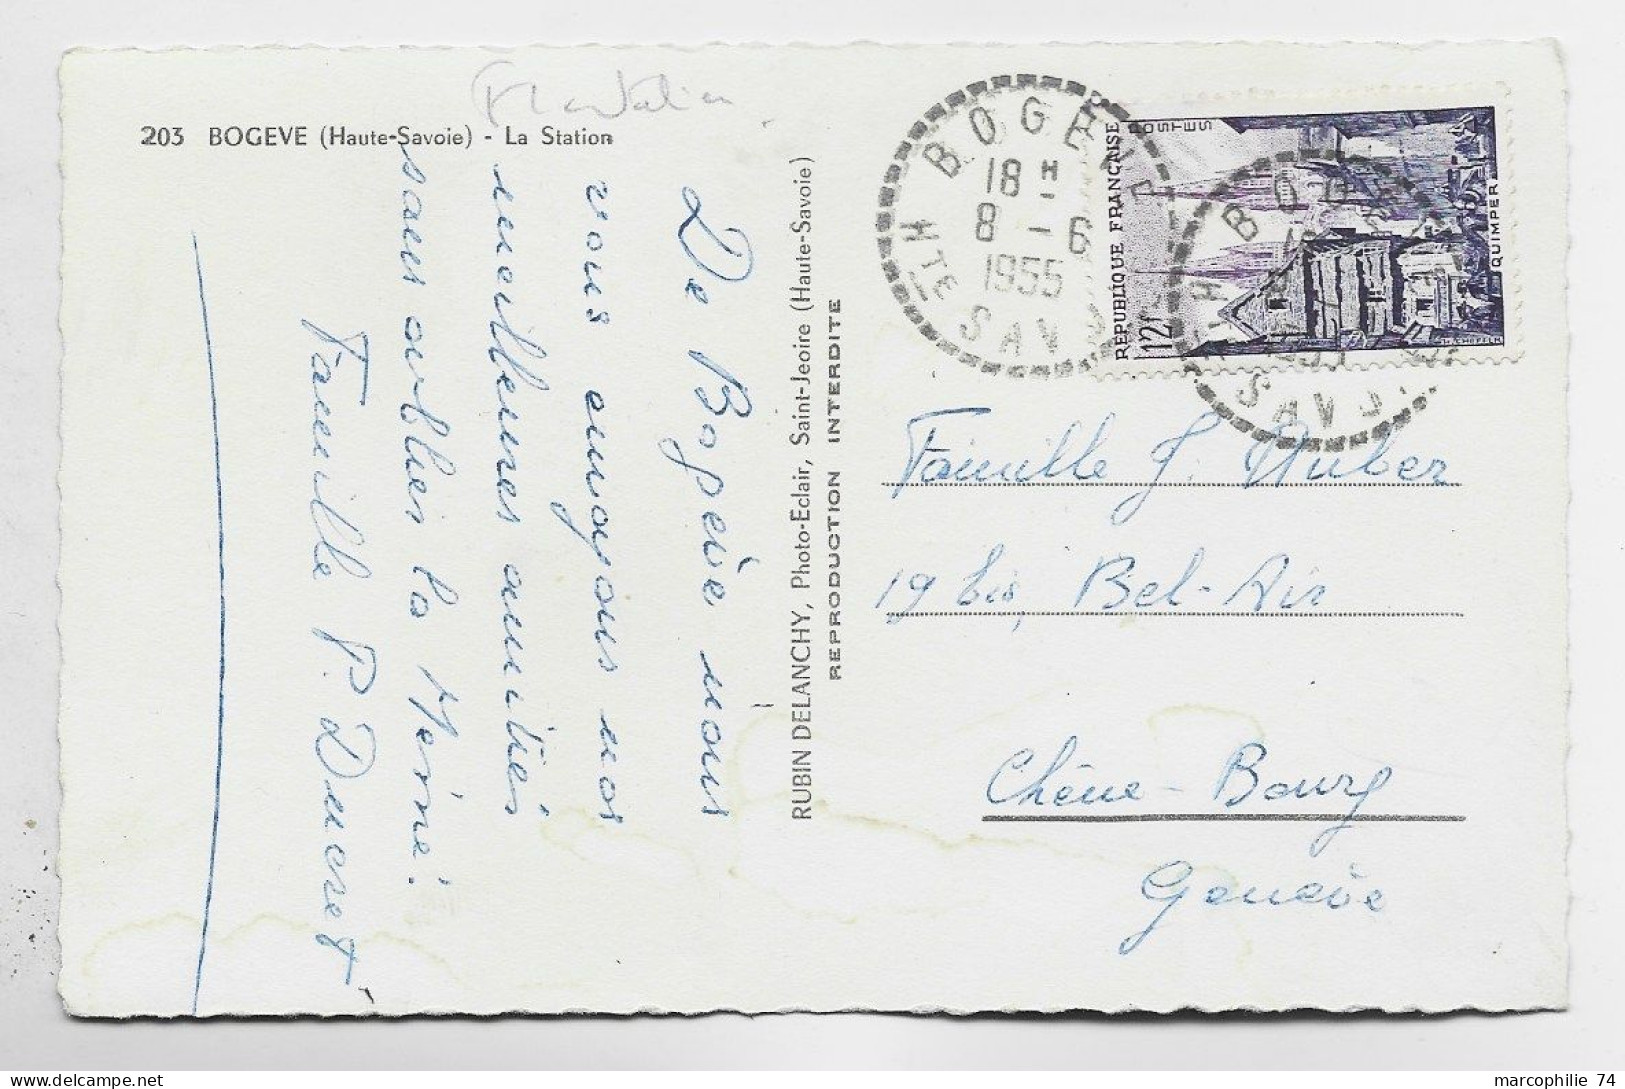 203 BOGEVE (Haute-Savoie) - La Station
De Bogève nous
vous envoyons nos
meilleures amitiés
sans oublier la Mémé!
Famille P. Ducret
RUBIN DELANCHY, Photo-Eclair, Saint-Jeoire (Haute-Savoie)
REPRODUCTION INTERDITE
BOGEVE
18 H
8 - 6
1955
HTE SAVOIE
REPUBLIQUE FRANÇAISE
POSTES
12f
QUIMPER
Famille J. Huber
19 bis, Bel-Air
Chêne-Bourg
Genève
marcophilie 74